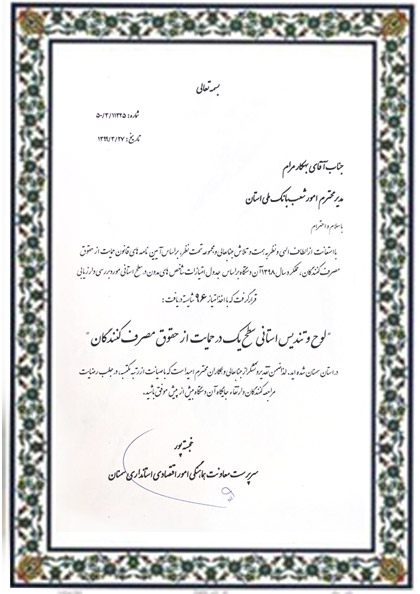 بسمه تعالی
شماره: ۵۰/۳/۱۱۲۲۵
تاریخ: ۱۳۹۹/۳/۲۷
جناب آقای بهکار مرام
مدیر محترم امور شعب بانک ملی استان
با سلام و احترام
با استعانت از الطاف الهی و نظر به همت و تلاش جنابعالی و مجموعه تحت نظر، براساس آیین نامه های قانون حمایت از حقوق
مصرف کنندگان، عملکرد سال ۱۳۹۸ آن دستگاه براساس جدول امتیازات شاخص های مدون در سطح استانی مورد بررسی و ارزیابی
قرار گرفت که با اخذ امتیاز ۹۶ شایسته دریافت :
" لوح و تندیس استانی سطح یک در حمایت از حقوق مصرف کنندگان "
در استان سمنان شده اید. لذا ضمن تقدیر و تشکر از جنابعالی و همکاران محترم امید است که با صیانت از رتبه مکتسبه، در جلب رضایت
مراجعه کنندگان و ارتقاء جایگاه آن دستگاه بیش از پیش موفق باشید.
خجسته پور
سرپرست معاونت هماهنگی امور اقتصادی استانداری سمنان